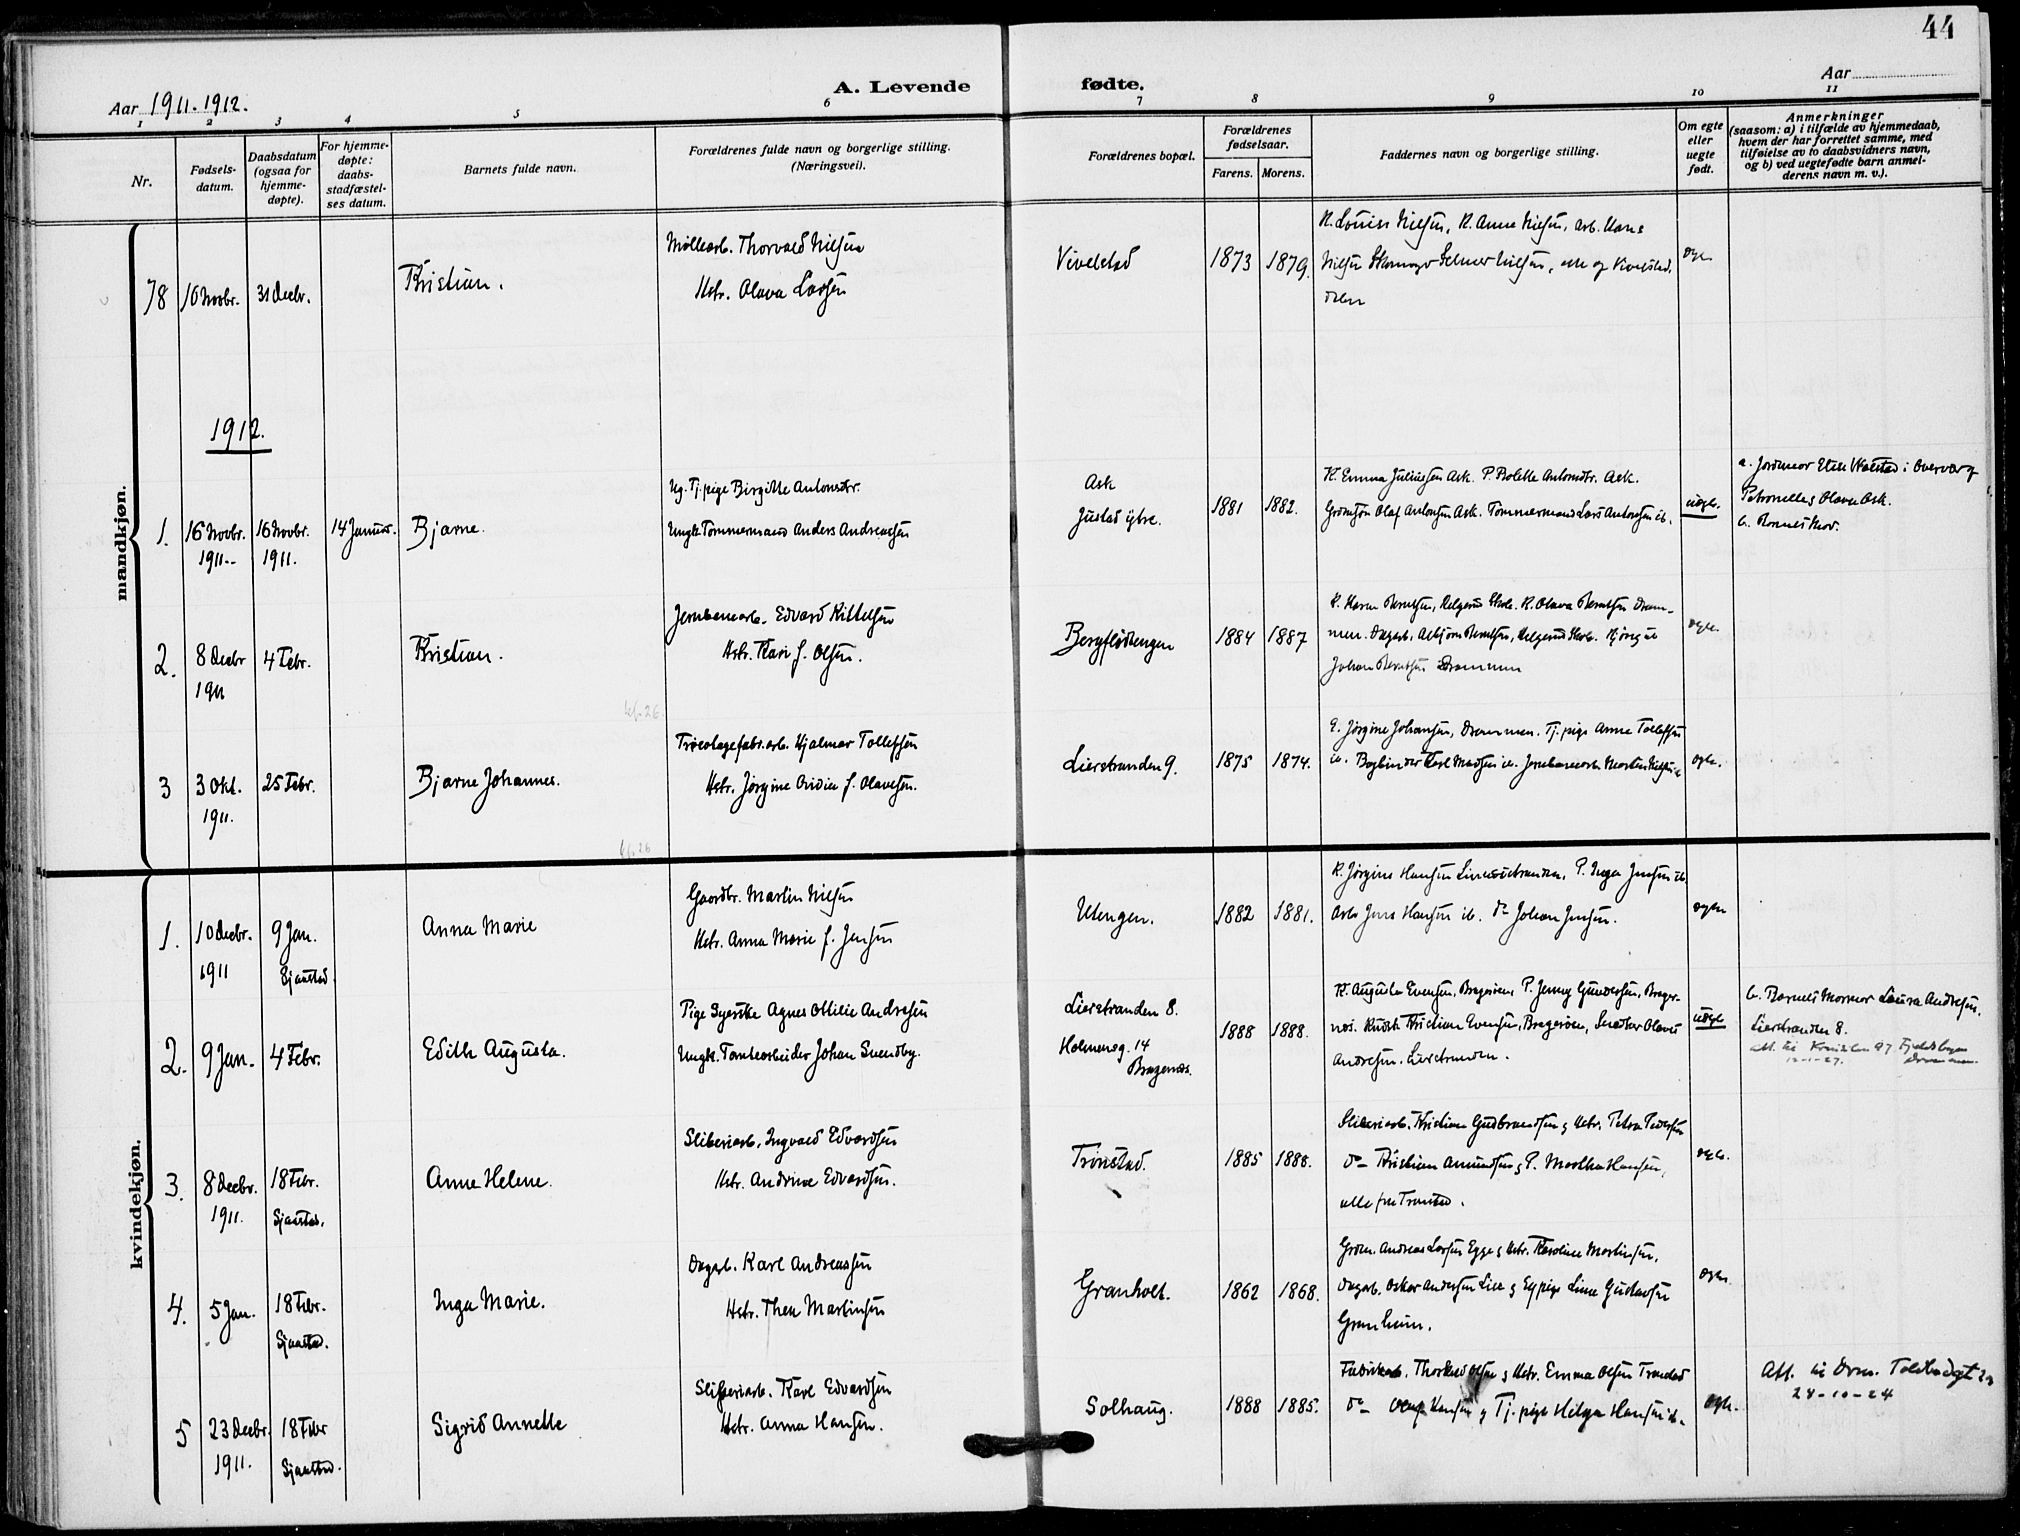 44
Aar 1911-1912.
A. Levende fødte.
Aar
1 2 3 4 5 6 7 8 9 10 11
Nr.
Fødsels-
datum.
Daabsdatum
(ogsaa for
hjemme-
døpte).
For hjemme-
døpte:
daabs-
stadfæstel-
ses datum.
Barnets fulde navn.
Forældrenes fulde navn og borgerlige stilling.
(Næringsvei).
Forældrenes bopæl.
Forældrenes
fødselsaar.
Farens. Morens.
Faddernes navn og borgerlige stilling.
Om egte
eller
uegte
født.
Anmerkninger
(saasom: a) i tilfælde av hjemmedaab,
hvem der har forrettet samme, med
tilføielse av to daabsvidners navn,
og b) ved uegtefødte barn anmel-
derens navn m. v.).
mandkjøn.
78 10 Novbr. 31 Decbr.
Kristian.
Møllearb. Thorvald Nilsen
Hstr. Olava Larsen
Vivelstad
1873 1879.
K. Louise Nilsen, K. Anne Nilsen, Arb. Hans
Nilsen Selmer Nilsen, alle
egte
1912.
1. 16 Novbr. 16 Novbr. 14 Januar.
1911.- 1911.
Bjarne.
Ug. Tj.pige Birgitte Antonsdtr.
Ungk. Tømmermand Anders Andreassen
Ask
Justad ytre.
1881 1882.
K. Emma Juliussen Ask. P. Bolette Antonsdtr. Ask.
Olaf Antonsen Ask. Tømmermand Lars Antonsen ib.
uegte.
a. Jordmor i Overvær af
Petronelle & Olava Ask.
b. Barnets Mor.
2. 8 Decbr 4 Febr.
1911
Kristian.
kf. 26
Jernbanearb. Edvard Kittelsen
Hstr. Kari f. Olsen.
Bergflødtengen
1884 1887
K. Berntsen, K. Olava Berntsen Dram-
men. Dagarb. Berntsen,
Johan Berntsen Drammen
egte.
3 3 Okt. 25 Febr.
1911.
Bjarne Johannes.
kf. 26
Tricotagefabr.arb. Hjalmar Tollefsen
Hstr. Jørgine f. Olavesen.
Lierstranden 9.
1875 1874.
E. Jørgine Johansen, Drammen. Tj. pige Anne Tollefsen
ib. Bogbinder Karl Madsen ib. Jernbanearb. Morten Nilsen ib
egte.
kvindekjøn.
1. 10 Decbr. 9 Jan.
1911 Sjaastad.
Anna Marie
Gaardbr. Martin Nilsen
Hstr. Anna Marie f. Jensen
Utengen.
1882 1881.
K. Jørgine Hansen P. Inga Jensen ib.
Arb. Jens Hansen ib. do Johan Jensen.
egte
2. 9 Jan. 4 Febr.
Edith Augusta.
Pige Syerske Agnes Ottilie Andresen
Ungk. Tomtearbeider Johan Svendby.
Lierstranden 8.
Holmensg. 14
Bragernæs.
1888 1888.
K. Augusta Evensen, Bragerøen, P. Jenny Gundersen, Brager-
næs. Kudsk Kristian Evensen, Bragerøen, Snedker Olaves
Andresen. Lierstranden.
uegte
b. Barnets Mormor Laura Andresen,
Lierstranden 8.
12-1-27. Drammen.
3. 8 Decbr. 18 Febr.
1911. Sjaastad.
Anne Helene.
Sliberiarb. Ingvald Edvardsen
Hstr. Andrine Edvardsen.
Tronstad.
1885 1888.
Sliberiarb. Kristian Gudbrandsen & Hstr. Petra Pedersen
do Kristian Amundsen & P. Martha Hansen,
alle fra Tronstad.
egte.
4. 5 Jan. 18 Febr.
Sjaastad.
Inga Marie.
Dagarb. Karl Andreassen
Hstr. Thea Martinsen
Granholt.
1862 1868.
Andreas Larsen Egge & Hstr. Karoline Martinsen,
Dagarb. Oskar Andersen Lier & Line Gustavsen
Granheim.
egte
5 23 Decbr. 18 Febr
1911. Sjaastad.
Sigrid Annette
Sliperiarb. Karl Edvardsen
Hstr. Anna Hansen.
Solhaug.
1888 1885.
Fabrikarb. Olsen & Hstr. Emma Olsen Tronstad
do Hansen & Tj. pige Helga Hansen ib.
egte.
Att. til Drm. Toldbodgt
24-10-24